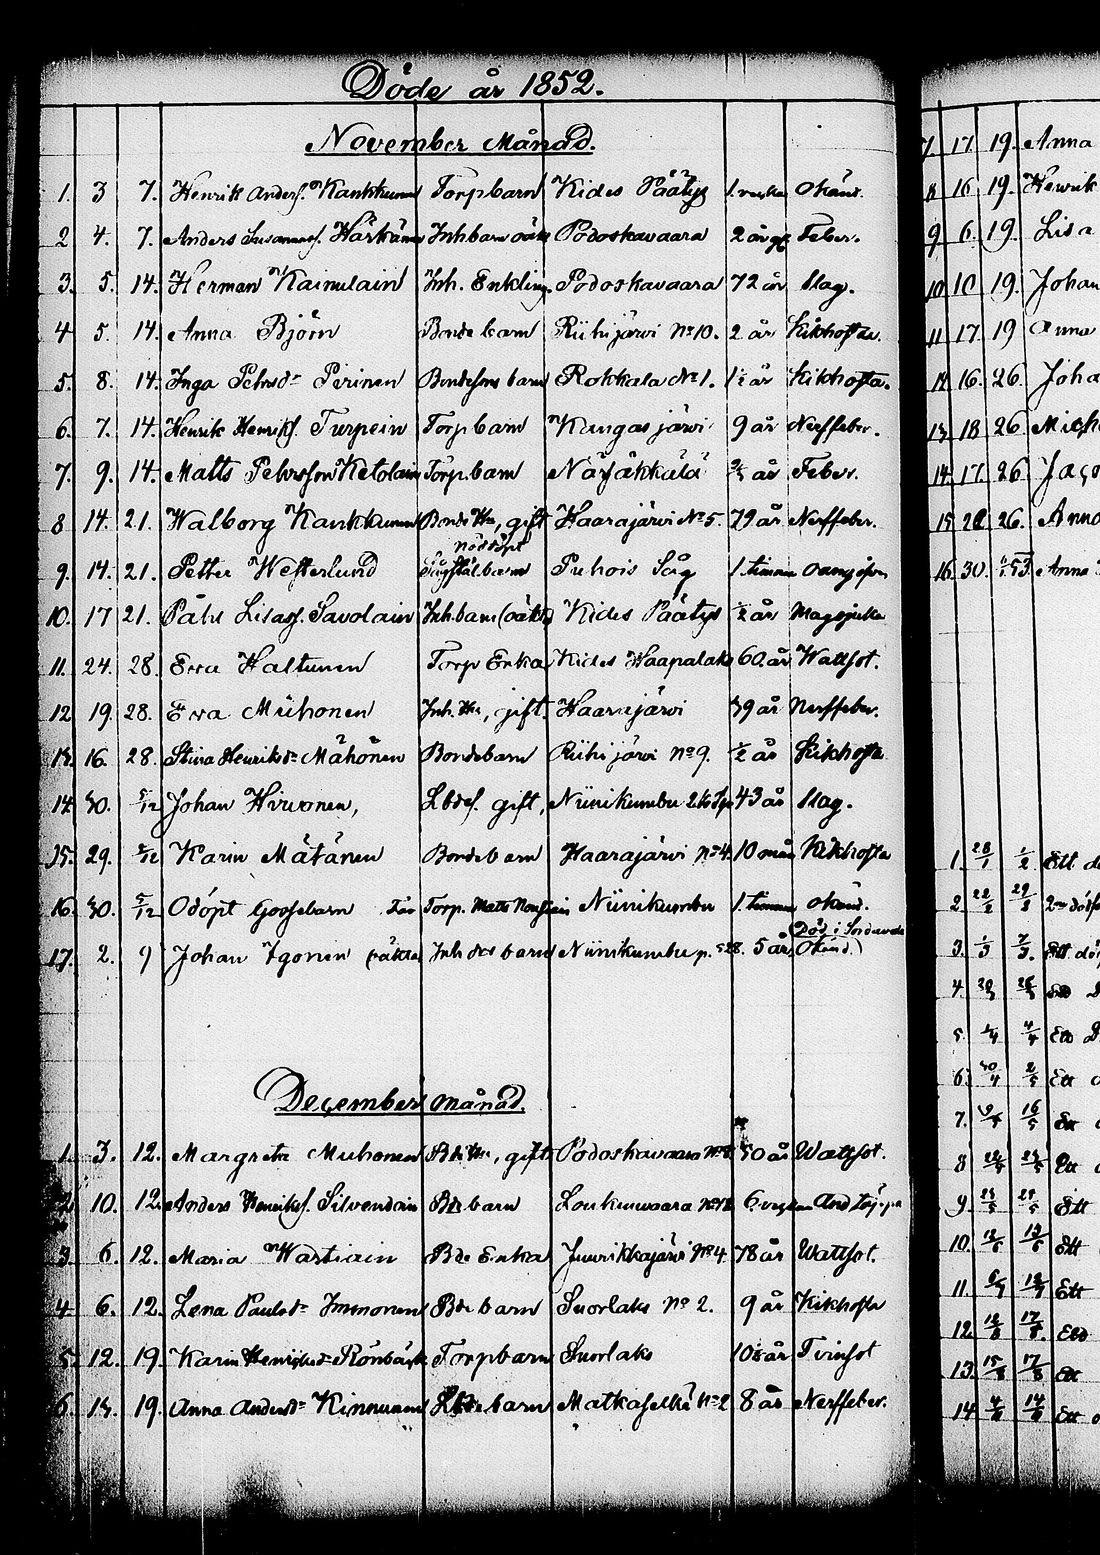 Döde år 1852.
November Månad.
1. 3 7. Henrik Anders. Kankkunen Torpbarn Kides Päätys 1. vecka Okänd.
2 4. 7. Anders Susannas. Härkänen Inh. barn oäkt Podoskavaara 2 år Feber.
3. 5. 14. Herman Kainulain Inh. Enkling Podoskavaara 72 år Slag.
4 5. 14. Anna Björn Bonde barn Riihijärvi No 10. 2 år Kikhosta.
5. 8. 14. Inga Pehrsdr Pirinen Bondesons barn Rokkala No 1. 1½ år Kikhosta.
6. 7. 14. Henrik Henriks. Turpein Torpbarn Kangasjärvi 9 år Nerffeber.
7. 9. 14. Matts Pehrsson Ketolain Torpbarn Närsäkkälä ¾ år Feber.
8 14. 21. Walborg Kankkunen Bonde Hu, gift Haarajärvi No 5. 79 år Nerffeber.
nöddöpt
9. 14. 21. Petter Westerlund barn Puhois Såg 1. timme
10. 17 21. Påhl Lisas. Savolain Inh. barn (oäkta) Kides Päätys ½ år Magsjuka
11. 24. 28. Eva Haltunen Torp Enka Kides Haapalaks 60 år Wattsot.
12 19. 28. Eva Muhonen Inh. Hu, gift. Haarajärvi 39 år Nerffeber.
13. 16. 28. Stina Henriksdr Mähönen Bondebarn Riihijärvi No 9. ½ år Kikhosta
14 30. 5/12 Johan Hirvonen, Lbdes. gift, Niinikumbu 43 år Slag.
15. 29. 5/12 Karin Mätänen Bondebarn Haarajärvi No 4. 10 mån Kikhosta
16. 30. 5/12 Odöpt Gossebarn Torp. Matts Niinikumbu 1. timme okänd.
(Död i Sordavala
17. 2. 9 Johan Igonen (oäkta Inh barn Niinikumbu p. 528. 5 år Okänd.)
December månad.
1. 3. 12. Margreta Muhonen Bde Hu, gift Podoskavaara 50 år Wattsot.
2. 10. 12. Anders Henriks. Silvendoin Bde barn Loukunvaara No 12 6 veckor Andtäppa
3 6. 12. Maria Wartiain Bde Enka Juurikkajärvi No 4. 78 år Wattsot.
4. 6. 12. Lena Paulsdr Immonen Bde barn Suorlaks No 2. 9 år Kikhosta
5. 12. 19. Karin Henriksdr Rönbäck Torpbarn Suorlaks 10 år Tvinsot
6. 13. 19. Anna Andersdr Kinnunen barn Matkaselkä No 2 8 år Nerffeber.
7. 17. 19. Anna
8 16. 19. Henrik
9 6. 19. Lisa
10 10 19. Johan
11 17. 19 Anna
16. 26. Joha
13 18 26 Mich
14. 17. 26 Jaco
15 26. Anna
16. 30. Anna
1. 28/1 1/2 Ett
2. 22/2 29/2
3. 1/3 7/3. Ett
4.
5. 4/4 Ett
6. 30/4 2/5 Ett
7. 16/5 Ett
8 Ett
9. Ett
10. Ett
11. Ett
12. Ett
13. 15/8 17/8 Ett
14. Ett